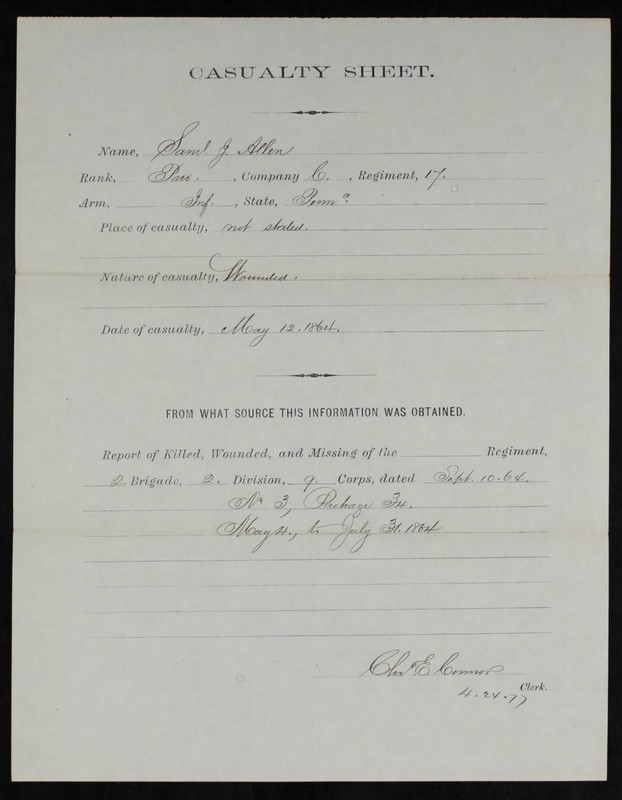 CASUALTY SHEET.
Name, Saml J. Allen
Rank, Priv. , Company C. , Regiment, 17.
Arm, Inf. , State, Penna.
Place of casualty, not stated.
Nature of casualty, Wounded.
Date of casualty, May 12. 1864.
FROM WHAT SOURCE THIS INFORMATION WAS OBTAINED.
Report of Killed, Wounded, and Missing of the Regiment,
2. Brigade, 2. Division, 9. Corps, dated Sept. 10. 64.
No 3, Package 34.
May 4., to July 31. 1864
Chas E. Connor
Clerk.
4.24.77